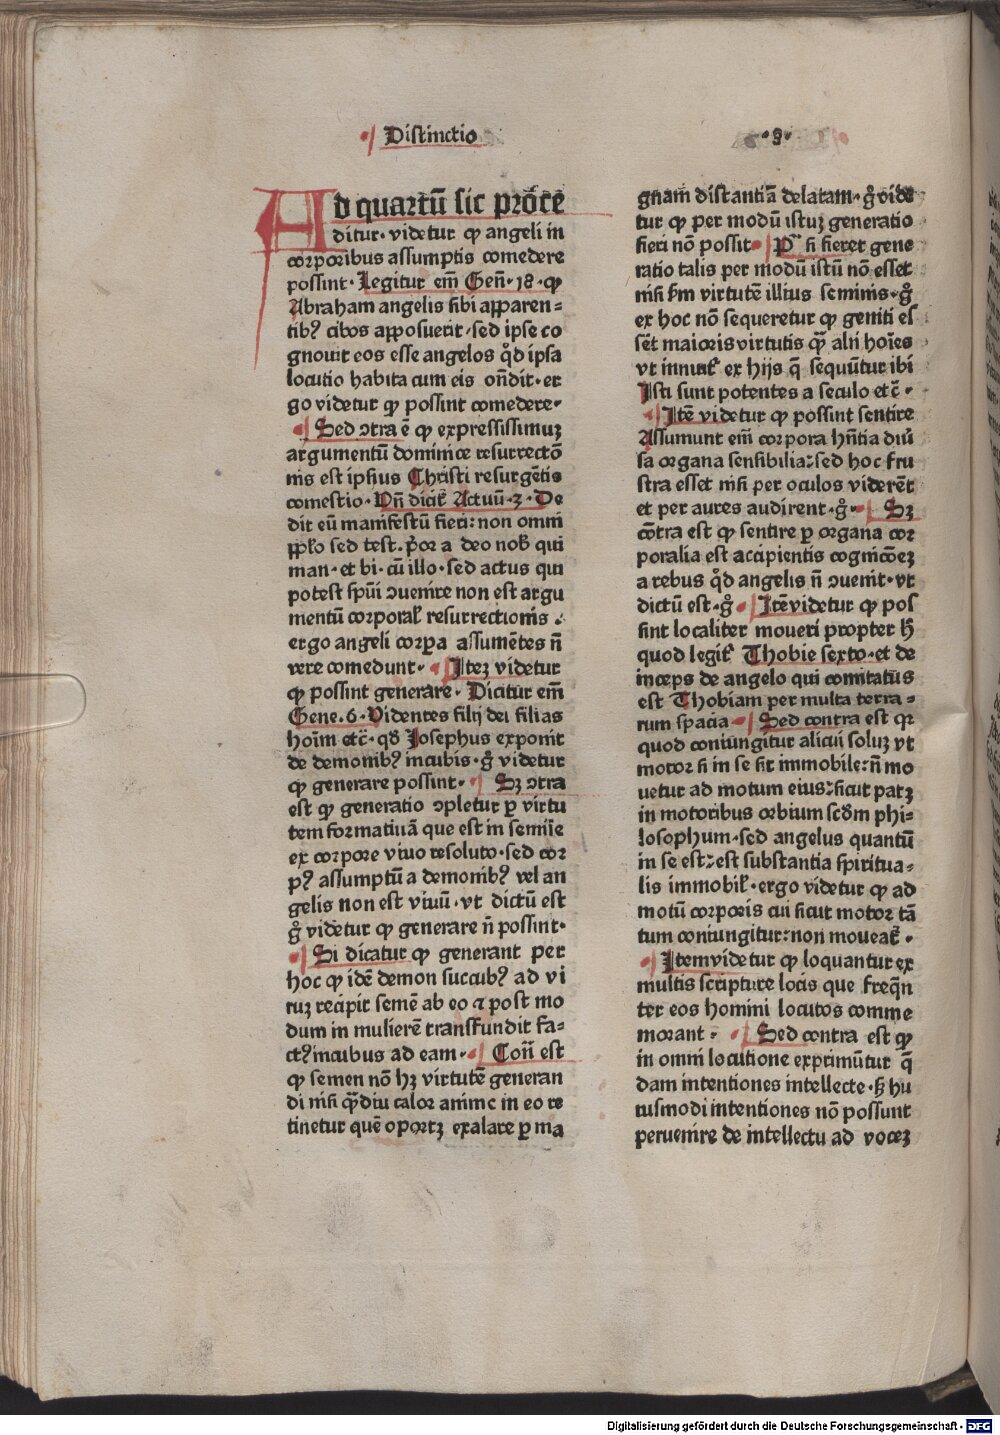 Distinctio
·8·
Ad quartū sic prōce
ditur· videtur ꝙ angeli in
corporibus assumptis comedere
possint· Legitur em̄ Gen̄·18·ꝙ
Abraham angelis sibi apparen-
tibꝰ cibos apposuerit·sed ipse co
gnouit eos esse angelos qd̊ ipsa
locutio habita cum eis on̄dit·er
go videtur ꝙ possint comedere·
Sed ↄtra ē ꝙ expressissimuꝫ
argumentū dominice resurrectō
nis est ipsius Christi resurgētis
comestio· Vn̄ dicit᷑ Actuū·3· De
dit eū manifestū fieri: non omni
pp̄lo sed test· p̄or a deo nob̄ qui
man·et bi·cū illo·sed actus qui
potest sp̄ui ↄuenire non est argu
mentū corporal᷑ resurrectionis·
ergo angeli corꝑa assumētes n̄
vere comedunt· Iteꝫ videtur
ꝙ possint generare· Dicitur em̄
Gene·6· Videntes filij dei filias
hoīm etc̄· qd̄ Josephus exponit
de demonibꝰ incubis·g̊ videtur
ꝙ generare possint· Sꝫ ↄtra
est ꝙ generatio ↄpletur ꝑ virtu
tem formatiuā que est in semīe
ex corpore viuo resoluto·sed cor
pꝰ assumptū a demonibꝰ vel an
gelis non est viuū·vt dictū est
g̊ videtur ꝙ generare n̄ possint·
Si dicatur ꝙ generant per
hoc ꝙ idē demon succubꝰ ad vi
ruꝫ recipit semē ab eo ⁊ post mo
dum in mulierē transfundit fa-
ctꝰ incubus ad eam· Con̄ est
ꝙ semen nō hꝫ virtutē generan
di nisi qᷓdiu calor anime in eo re
tinetur quē oportꝫ exalare ꝑ ma
gnam distantiā delatam·g̊ vide
tur ꝙ per modū istuꝫ generatio
fieri nō possit· P̄ si fieret gene
ratio talis per modū istū nō esset
nisi sm̄ virtutē illius seminis·g̊
ex hoc nō sequeretur ꝙ geniti es
sēt maioris virtutis qᷓ alij hoīes
vt innuit᷑ ex hijs q̄ sequūtur ibi
Isti sunt potentes a seculo etc̄·
Itē videtur ꝙ possint sentire
Assumunt em̄ corpora hn̄tia diū
sa organa sensibilia: sed hoc fru
stra esset nisi per oculos viderēt
et per aures audirent·g̊· Sꝫ
cōtra est ꝙ sentire ꝑ organa cor
poralia est accipientis cognicōeꝫ
a rebus qd̊ angelis n̄ ↄuenit·vt
dictū est·g̊· Itē videtur ꝙ pos
sint localiter moueri propter h̄
quod legit᷑ Thobie sexto·et de
inceps de angelo qui comitatus
est Thobiam per multa terra-
rum spacia· Sed contra est qꝛ
quod coniungitur alicui soluꝫ vt
motor si in se sit immobile: n̄ mo
uetur ad motum eius: sicut patꝫ
in motoribus orbium scd̄m phi-
losophum·sed angelus quantū
in se est: est substantia spiritua-
lis immobil᷑·ergo videtur ꝙ ad
motū corporis cui sicut motor tā
tum coniungitur: non moueat᷑·
Item videtur ꝙ loquantur ex
multis scripture locis que freq̄n
ter eos homini locutos comme
morant· Sed contra est ꝙ
in omni locutione exprimūtur q̄
dam intentiones intellecte·sꝫ hu
iusmodi intentiones nō possunt
peruenire de intellectu ad voceꝫ
Digitalisierung gefördert durch die Deutsche Forschungsgemeinschaft - DFG